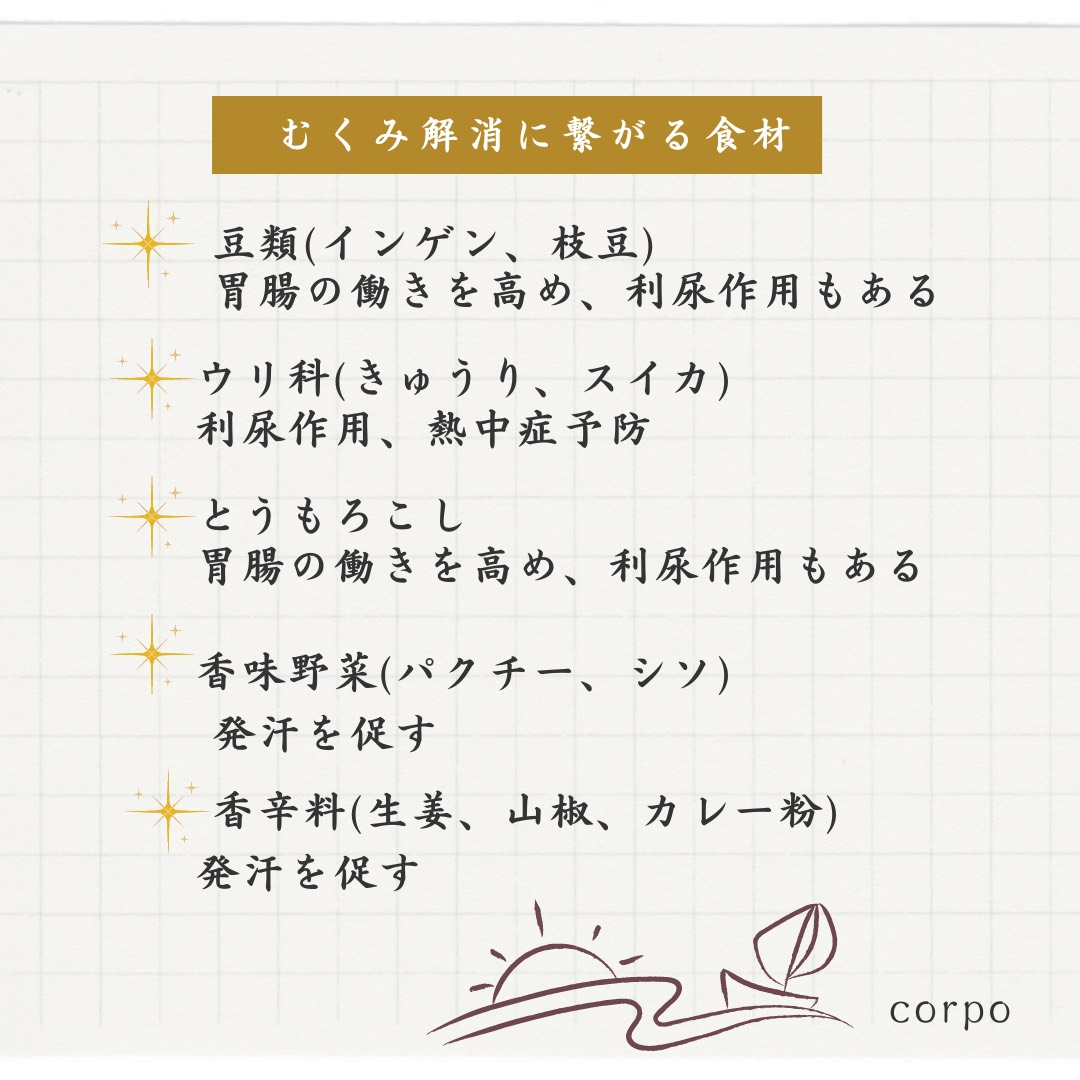 むくみ解消に繋がる食材
豆類(インゲン、枝豆)
胃腸の働きを高め、利尿作用もある
ウリ科(きゅうり、スイカ)
利尿作用、熱中症予防
とうもろこし
胃腸の働きを高め、利尿作用もある
香味野菜(パクチー、シソ)
発汗を促す
香辛料(生姜、山椒、カレー粉)
発汗を促す
corpo